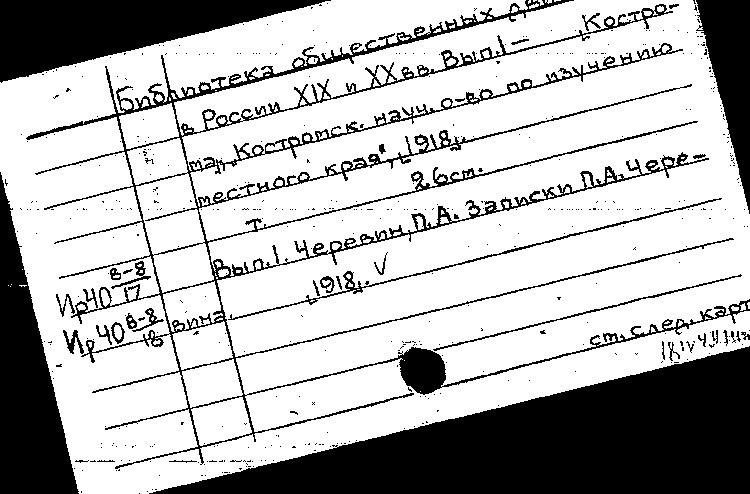 Библиотека общественных дви
в России XIX и XX вв. Вып.1 – [Костро-
ма], „Костромск. науч. о-во по изучению
местного края", [1918].
т. 26 см.
Вып.1. Черевин, П.А. Записки П.А. Чере-
вина. [1918]. V
Ир40 8-8/17
Ир40 8-8/18
см. след. карт